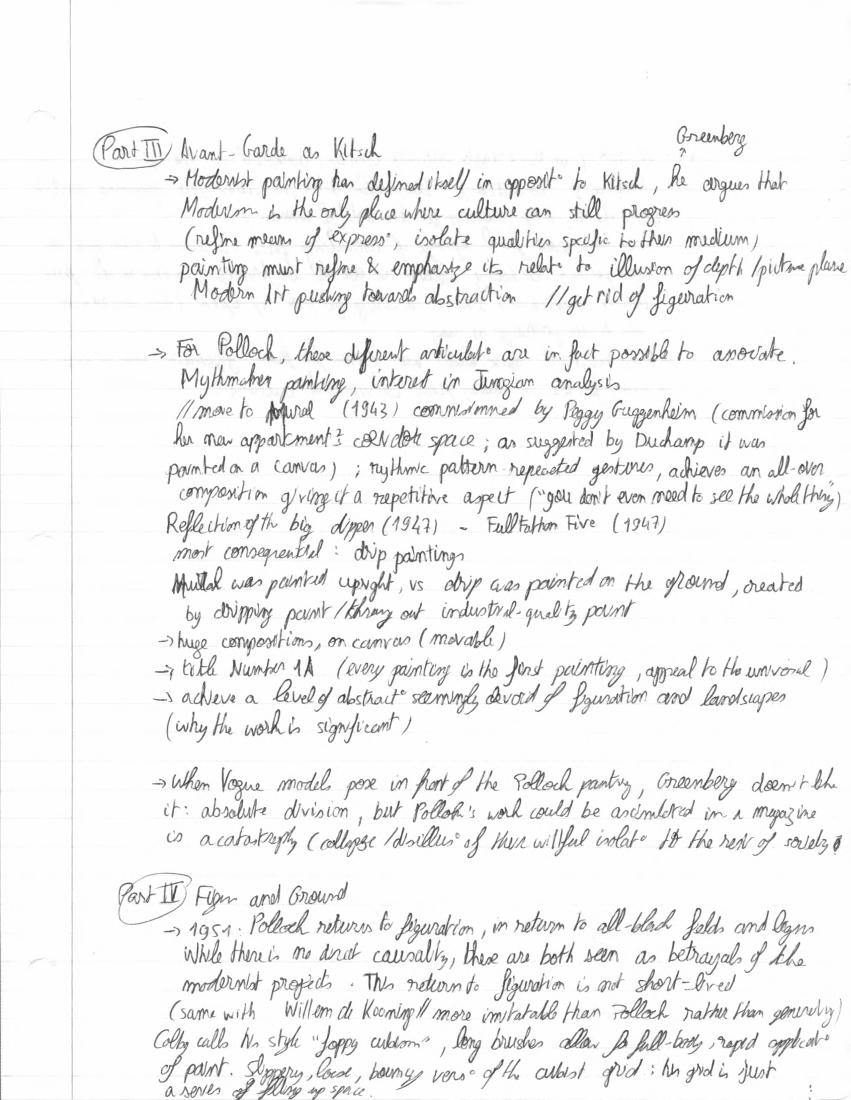 Greenberg
Part III Avant-Garde as Kitsch
→ Modernist painting has defined itself in opposit° to Kitsch, he argues that
Modernism is the only place where culture can still progress
(refine means of express°, isolate qualities specific to their medium)
painting must refine & emphasize its relat° to illusion of depth / picture plane
Modern Art pushing towards abstraction // get rid of figuration
→ For Pollock, these different articulat° are in fact possible to
Mythmaker painting, interest in Jungian analysis
// move to Mural (1943) commissionned by Peggy Guggenheim (commission for
her new appartment space ; as suggested by Duchamp it was
painted on a canvas) ; rythmic pattern repeated gestures, achieves an all-over
composition giving it a repetitive aspect ("you don't even need to see the whole thing")
Reflection of the big dipper (1947) - Full Fathom Five (1947)
most consequential : drip paintings
Mural was painted upright, vs drip was painted on the ground, created
by dripping paint / out industrial-quality paint
→ huge compositions, on canvas (movable)
→ title Number 1A (every painting is the first painting, appeal to the universal)
→ achieve a level of abstract° seemingly devoid of figuration and landscapes
(why the work is significant)
→ When Vogue models pose in front of the Pollock painting, Greenberg doesn't like
it : absolute division, but Pollock's work could be in a magazine
is a catastrophy (collapse / disillus° of their willful isolat° to the rest of society
Part IV Figure and Ground
→ 1951. Pollock returns to figuration, in return to all-black fields and
While there is no direct causality, these are both seen as betrayals of the
modernist projects. This return to figuration is not short-lived
(same with Willem de Kooning // more imitatable than Pollock rather than generosity)
Colby calls his style "foppy cubism", long brushes allow for full-body, rapid applicat°
of paint. Slippery, loose, bouncy vers° of the cubist grid : his grid is just
a series of filling up space.